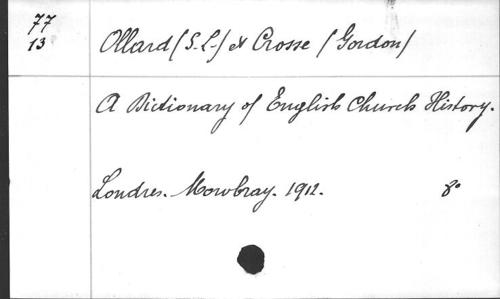 77
13
Ollard (S.L.) & Crosse (Gordon)
A Dictionary of English Church History.
Londres. Mowbray. 1912. 8°